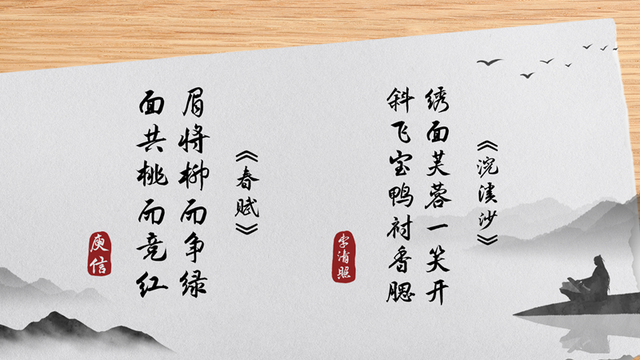 《浣溪沙》
绣面芙蓉一笑开
斜飞宝鸭衬香腮
李清照
《春赋》
眉将柳而争绿
面共桃而竞红
庾信